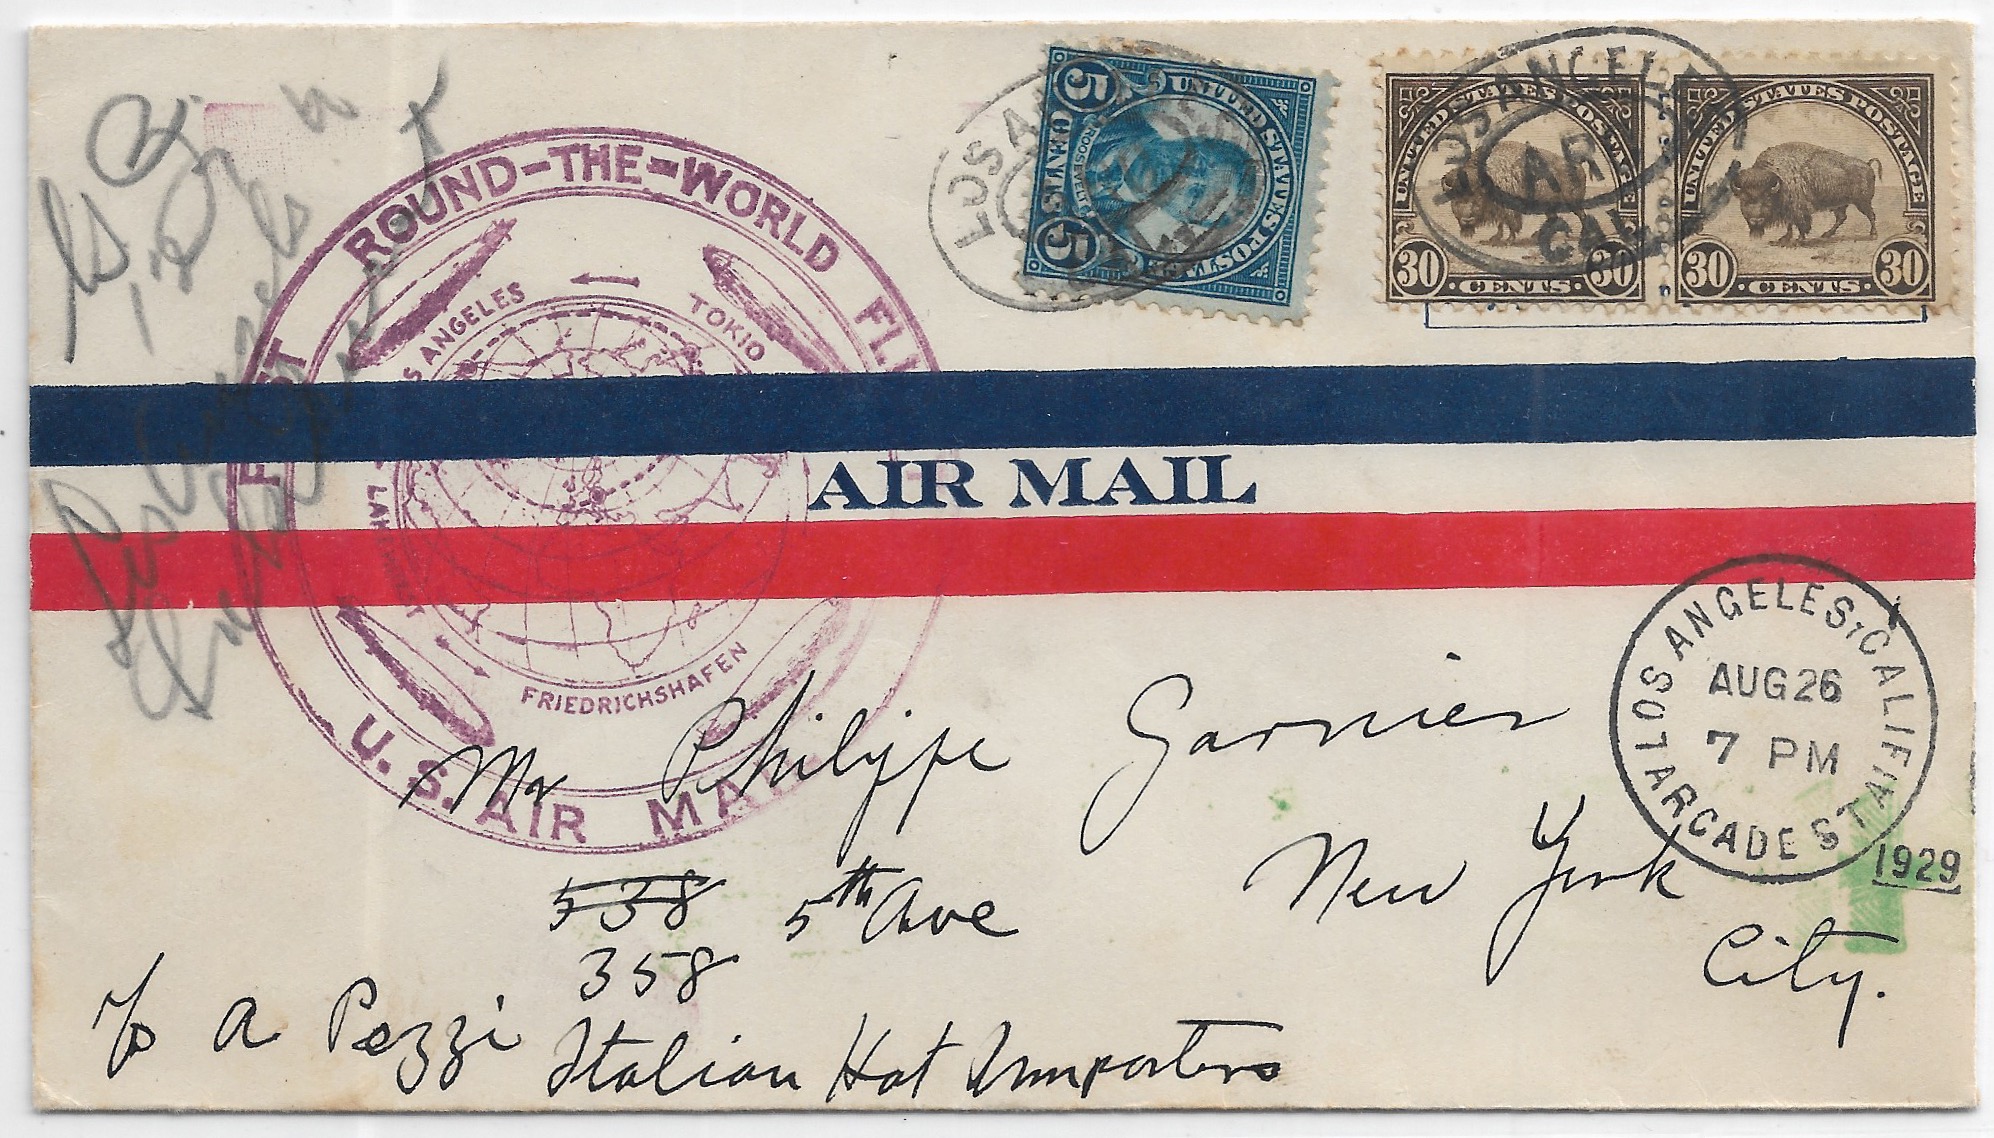 FIRST ROUND-THE-WORLD
LOS ANGELES
TOKIO
LAKEHURST
FRIEDRICHSHAFEN
U. S. AIR MAIL
LOS
UNITED STATES POSTAGE
ROOSEVELT
5 CENTS 5
LOS ANGELES
CAL
UNITED STATES POSTAGE
30 CENTS 30
UNITED STATES POSTAGE
30 CENTS 30
AIR MAIL
LOS ANGELES, CALIF.
AUG 26
7 PM
ARCADE STA
1929
Mr Philippe Garnier
538 5th Ave
358
New York
City.
c/o A Pezzi Italian Hat Importers